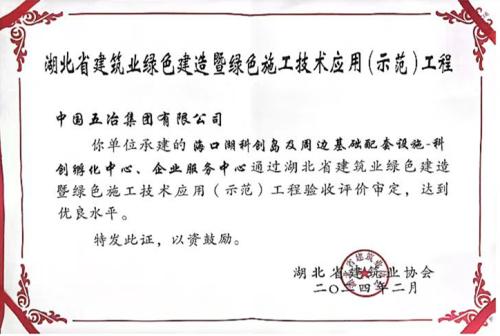 湖北省建筑业绿色建造暨绿色施工技术应用(示范)工程
中国五冶集团有限公司
你单位承建的 海口湖科创岛及周边基础配套设施-科
创孵化中心、企业服务中心通过湖北省建筑业绿色建造
暨绿色施工技术应用（示范）工程验收评价审定，达到
优良水平。
特发此证，以资鼓励。
湖北省建筑业协会
二〇二四年二月